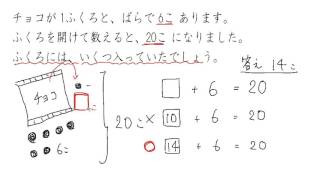 チョコが1ふくろと、ばらで6こ あります。
ふくろを開けて数えると、20こ になりました。
ふくろには、いくつ入っていたでしょう。
答え 14こ
チョコ
6こ
20こ
□ + 6 = 20
× 10 + 6 = 20
○ 14 + 6 = 20